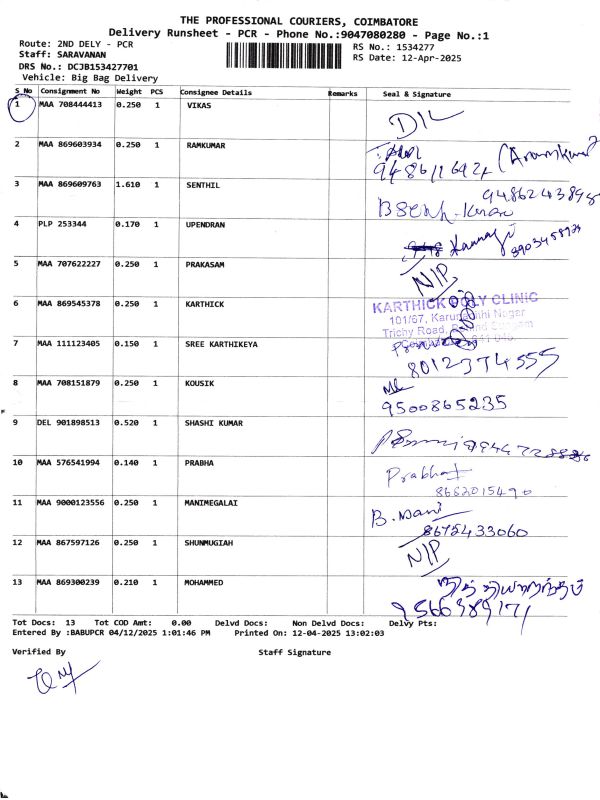 THE PROFESSIONAL COURIERS, COIMBATORE
Delivery Runsheet - PCR - Phone No.:9047080280 - Page No.:1
Route: 2ND DELY - PCR
RS No.: 1534277
Staff: SARAVANAN
RS Date: 12-Apr-2025
DRS No.: DCJB153427701
Vehicle: Big Bag Delivery
S No Consignment No Weight PCS Consignee Details Remarks Seal & Signature
1 MAA 708444413 0.250 1 VIKAS
D/L
2 MAA 869603934 0.250 1 RAMKUMAR
3 MAA 869609763 1.610 1 SENTHIL
4 PLP 253344 0.170 1 UPENDRAN
5 MAA 707622227 0.250 1 PRAKASAM
N/P
6 MAA 869545378 0.250 1 KARTHICK
KARTHICK POLY CLINIC
101/67, Nagar
Trichy Road,
7 MAA 111123405 0.150 1 SREE KARTHIKEYA
8012374555
8 MAA 708151879 0.250 1 KOUSIK
9500865235
9 DEL 901898513 0.520 1 SHASHI KUMAR
10 MAA 576541994 0.140 1 PRABHA
Prabha
8682015490
11 MAA 9000123556 0.250 1 MANIMEGALAI
B. Mani
8675433060
12 MAA 867597126 0.250 1 SHUNMUGIAH
N/P
13 MAA 869300239 0.210 1 MOHAMMED
9566389171
Tot Docs: 13 Tot COD Amt: 0.00 Delvd Docs: Non Delvd Docs: Delvy Pts:
Entered By :BABUPCR 04/12/2025 1:01:46 PM Printed On: 12-04-2025 13:02:03
Verified By Staff Signature